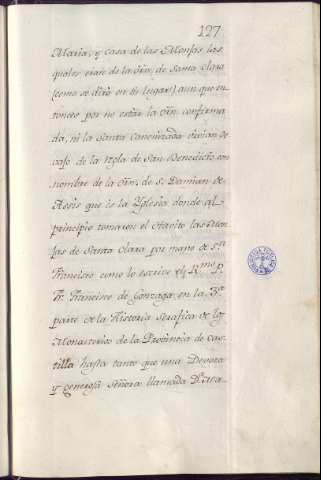 127
Maria, y casa de las Monjas, las
quales eran de la Orn. de santa clara
(como se dira en su lugar) aun que en
tonces por no estàr la Orn. confirma
da, ni la Santa canonizada vivian de
vajo de la regla de san Benedicto, con
nombre de la Orn. de Sn. Damian de
Assis que es la Yglesia donde al
principio tomaron el Havito las Mon
jas de Santa Clara por mano de Sn.
Francisco como lo escrive el Rmo. P.
Fr. Francisco de Gonzaga en la 3a.
parte de la Historia serafica de los
Monasterios de la Provincia de cas-
tilla hasta tanto que una Devota
y generosa señora llamada Da.